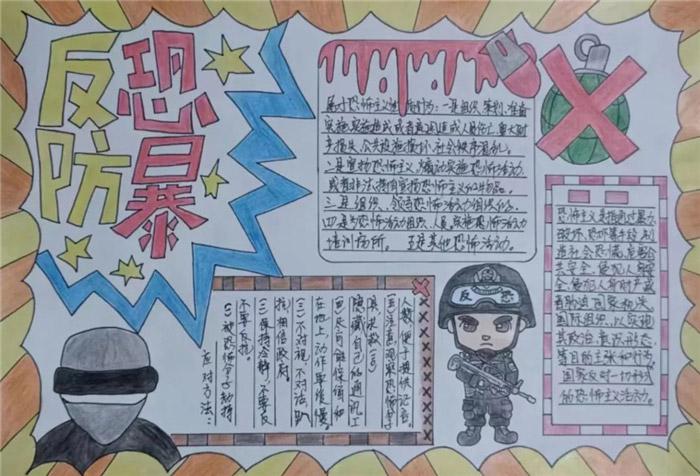 反恐
防暴
属于恐怖主义性质行为：一是组织、策划、准备
实施、实施造成或者意图造成人员伤亡、重大财
产损失、公共设施损坏、社会秩序混乱。
二是宣扬恐怖主义，煽动实施恐怖活动，
或者非法持有宣扬恐怖主义的物品。
三是组织、领导恐怖活动组织的。
四是为恐怖活动组织、人员、实施恐怖活动
培训场所。 五是其他恐怖活动。
恐怖主义是指通过暴力、
破坏、恐吓等手段，制
造社会恐慌、危害公
共安全、侵犯人身财
产、侵犯人身财产，或
者胁迫国家机关、
国际组织，以实现
其政治、意识形态
等目的主张和行为。
国家反对一切形式
的恐怖主义活动。
应对方法：
(一)被恐怖分子劫持
不要反抗。
(二)保持冷静，不要反
抗，相信政府。
(三)不对视，不对话，趴
在地上，动作要缓慢。
(四)尽可能保留和
隐藏自己的通讯工
具，求救。
(五)注意观察恐怖分子
人数，便于提供证言。
反恐